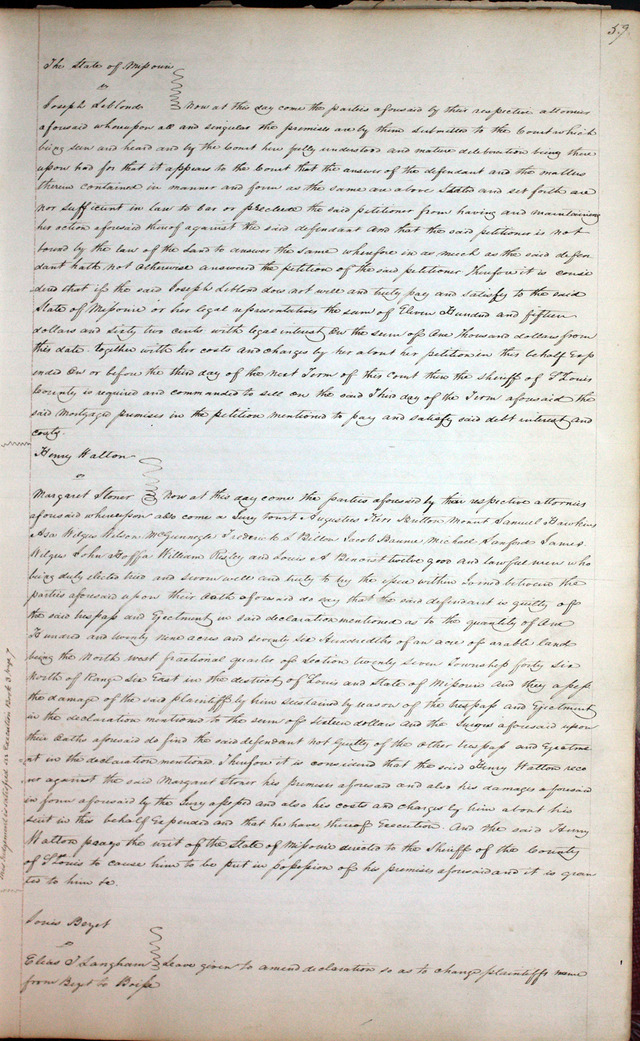 59
The State of Missouri
vs
Joseph Leblond Now at this day come the parties aforesaid by their respective attornies
aforesaid whereupon all and singular the premises are by them submitted to the Court which
being seen and heard and by the Court here fully understood and mature deliberation being there
upon had for that it appears to the Court that the answer of the defendant and the matters
therein contained in manner and form as the same are above stated and set forth are
not sufficient in law to bar or preclude the said petitioner from having and maintaining
her action aforesaid thereof against the said defendant And that the said petitioner is not
bound by the law of the Land to answer the same wherefore in as much as the said defen
dant hath not otherwise answered the petition of the said petitioner Therefore it is consi
dered that if the said Joseph Leblond does not well and truly pay and satisfy to the said
State of Missouri or her legal representatives the sum of Eleven Hundred and fifteen
dollars and sixty two cents with legal interest on the sum of One Thousand dollars from
this date together with her costs and charges by her about her petition in this behalf Exp
ended On or before the third day of the next Term of this Court then the sheriff of St Louis
County is required and commanded to sell on the said Third day of the Term aforesaid the
said Mortgaged premises in the petition mentioned to pay and satisfy said debt interest and
costs.
Henry Walton
vs
Margaret Stoner Now at this day come the parties aforesaid by their respective attornies
aforesaid whereupon also come a Jury towit Augustus Button Mount Samuel Hawkins
Asa Wilgus Wilson McGunnegle Frederick L Billon Jacob Michael Sanford James
Wilgus John Goffa William Risley and Louis A Benoist twelve good and lawful men who
being duly elected tried and sworn well and truly to try the issue within Joined between the
parties aforesaid upon their Oath aforesaid do say that the said defendant is guilty of
the said trespass and Ejectment in said declaration mentioned as to the quantity of One
Hundred and twenty nine acres and seventy six Hundredths of an acre of arable land
being the North west fractional quarter of Section twenty seven Township forty six
North of Range six East in the district of St Louis and State of Missouri and they assess
the damage of the said plaintiff by him sustained by reason of the trespass and Ejectment
in the declaration mentioned to the sum of sixteen dollars and the Jurors aforesaid upon
their Oaths aforesaid do find the said defendant not guilty of the other trespass and Ejectme
nt in the declaration mentioned Therefore it is considered that the said Henry Walton reco
ver against the said Margaret Stoner his premises aforesaid and also his damages aforesaid
in form aforesaid by the Jury assessed and also his costs and charges by him about his
suit in this behalf Expended and that he have thereof Execution. And the said Henry
Walton prays the writ of the State of Missouri directed to the Sheriff of the County
of St Louis to cause him to be put in possession of his premises aforesaid and it is gran
ted to him &c.
this judgment is satisfied see Execution Book 3 page 7
Louis Bezet
vs
Elias T Langham Leave given to amend declaration so as to change plaintiffs name
from Bezet to Boisse